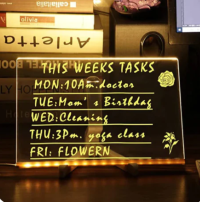 olivie
Arletta
THIS WEEKS TASKS
MON:10Am.doctor
TUE:Mom's Birthday
WED:Cleaning
THU:3Pm. yoga class
FRI: FLOWERN